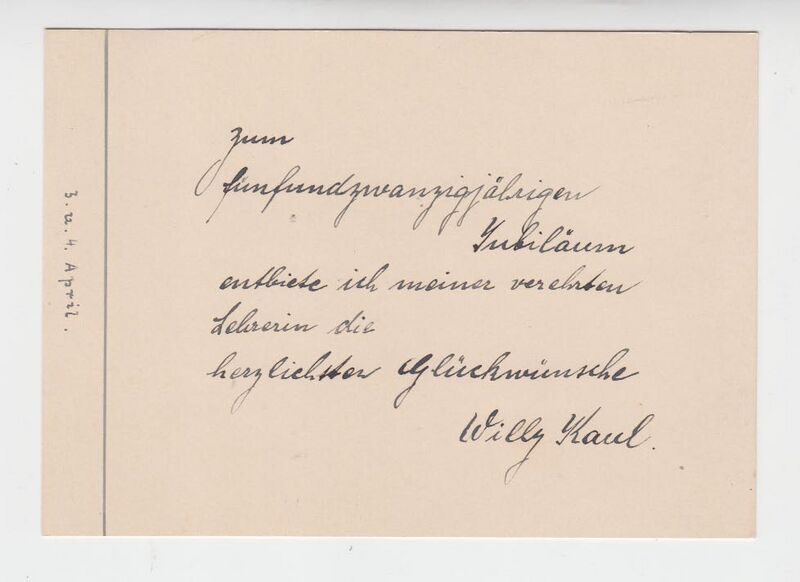 zum
fünfundzwanzigjährigen
Jubiläum
entbiete ich meiner verehrten
Lehrerin die
herzlichsten Glückwünsche
Willy Kaul.
3. u. 4. April.